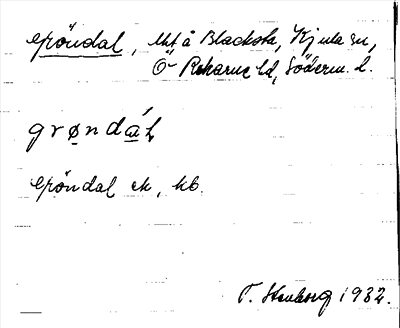 Gröndal, lht å Blacksta, Kjula sn,
Ö- Rekarne hd, Söderm. l.
grøndáḷ
Gröndal ek, kb.
T. Stenborg 1932.